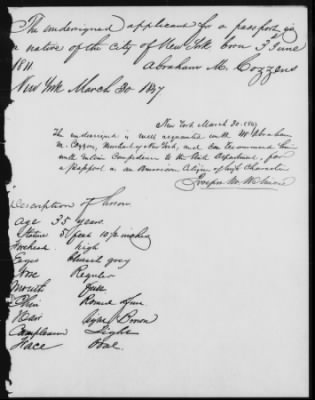 The undersigned applicant for a passport is
a native of the city of New York born 3 June
1811. Abraham M. Cozzens
New York March 30 1847
New York March 30. 1847
The undersigned is well acquainted with Mr Abraham
M. Cozzens, Merchant of New York, and can recommend him
with entire Complacence to the State Department, for
a Passport as an American Citizen of high Character
Joseph W.
Description of Person
age 35 years.
Stature 5 feet 10
Forehead high
Eyes Blueish gray
Nose Regular
Mouth
Chin Round
Hair Brown
Complexion Light
Face Oval.